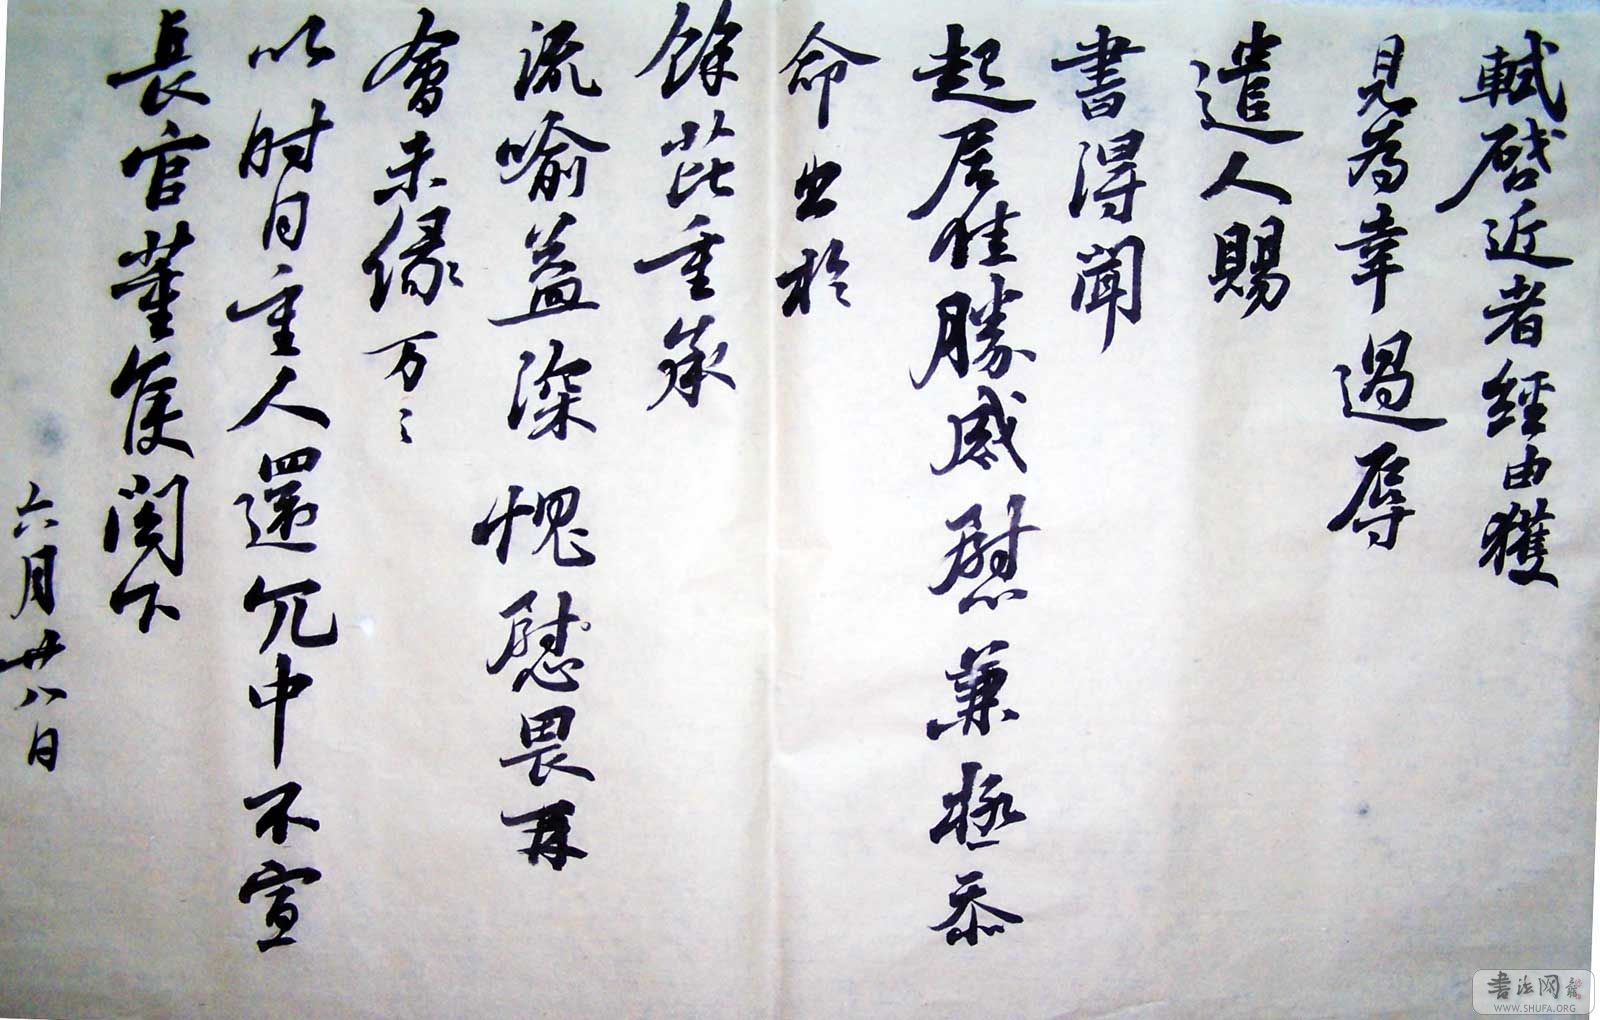 軾啓近者經由獲
見為幸過辱
遣人賜
書得聞
起居佳勝感慰兼極忝
命出於
餘芘重承
流喻益深愧慰畏再
會未緣万〻
以时自重人還冗中不宣
長官董侯閣下
六月廿八日
書法网
WWW.SHUFA.ORG